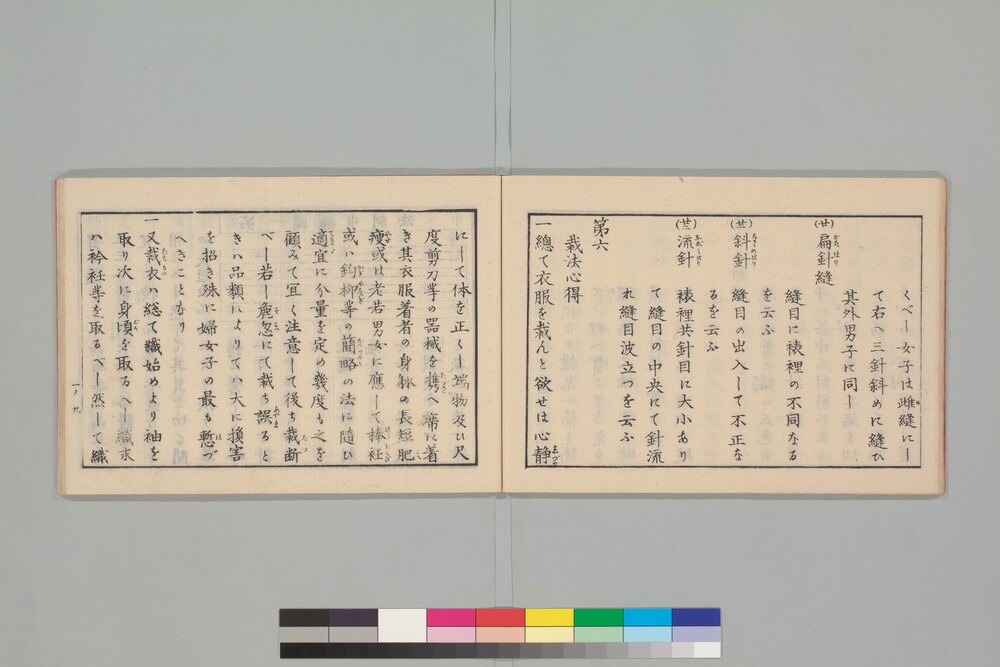 くべし女子は雌縫にし
て右へ三針斜めに縫ひ
其外男子に同し
(廿)扁針縫
縫目に裱裡の不同なる
を云ふ
(廿)斜針
縫目の出入して不正な
るを云ふ
(廿)流針
裱裡共針目に大小あり
て縫目の中央にて針流
れ縫目波立つを云ふ
第六
裁法心得
一總て衣服を裁んと欲せは心静
にして体を正くし端物及ひ尺
度剪刀等の器械を携へ席に着
き其衣服着者の身躰の長短肥
瘦或は老若男女に應して捧衽
或ハ鈎柳等の簡略の法に隨ひ
適宜に分量を定め幾度も之を
顧みて宜く注意して後ち裁断
べし若し麁忽にて裁ち誤ると
きハ品類ハよりてハ大に損害
を招き殊に婦女子の最も慙づ
へきことなり
一又裁衣ハ総て織始めより袖を
取り次に身頃を取るへし織末
ハ衿衽等を取るべし然して織